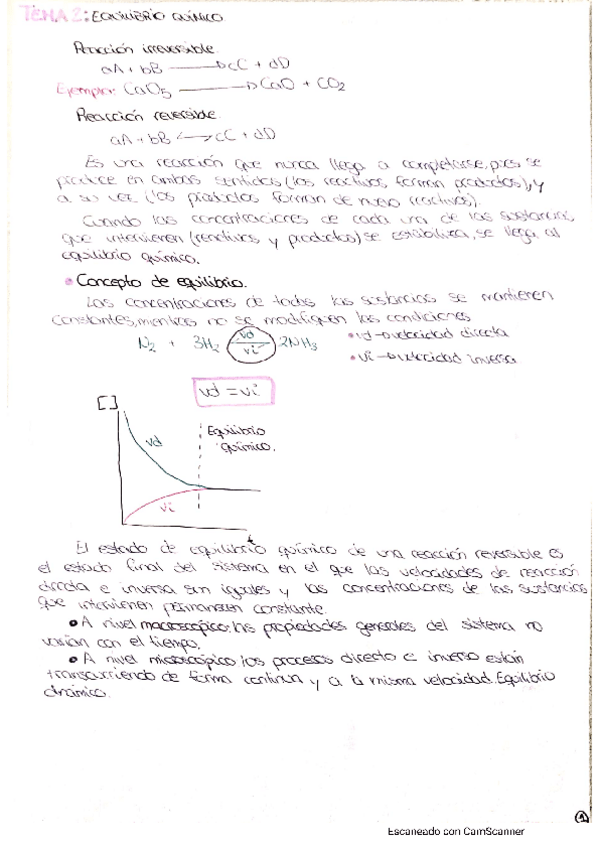 TEMA 2: EQUILIBRIO QUÍMICO
Reacción irreversible
aA + bB → cC + dD
Ejemplo: CaO5 → CaO + CO2
Reacción reversible.
aA + bB ↔ cC + dD
Es una reacción que nunca llega a completarse, pues se
produce en ambos sentidos (los reactivos forman productos), y
a su vez (los productos forman de nuevo reactivos).
Cuando las concentraciones de cada una de las sustancias,
que intervienen (reactivos y productos) se estabiliza, se llega al
equilibrio químico.
• Concepto de equilibrio.
Las concentraciones de todas las sustancias se mantienen
constantes, mientras no se modifiquen las condiciones
N2 + 3H2 vd/vi 2NH3
• vd → velocidad directa
• vi → velocidad inversa
vd = vi
[ ]
vd
Equilibrio
químico.
vi
t
El estado de equilibrio químico de una reacción reversible es
el estado final del sistema en el que las velocidades de reacción
directa e inversa son iguales y las concentraciones de las sustancias
que intervienen permanecen constante.
• A nivel macroscópico: las propiedades generales del sistema no
varían con el tiempo.
• A nivel microscópico: los procesos directo e inverso están
transcurriendo de forma continua y a la misma velocidad. Equilibrio
dinámico.
1
Escaneado con CamScanner